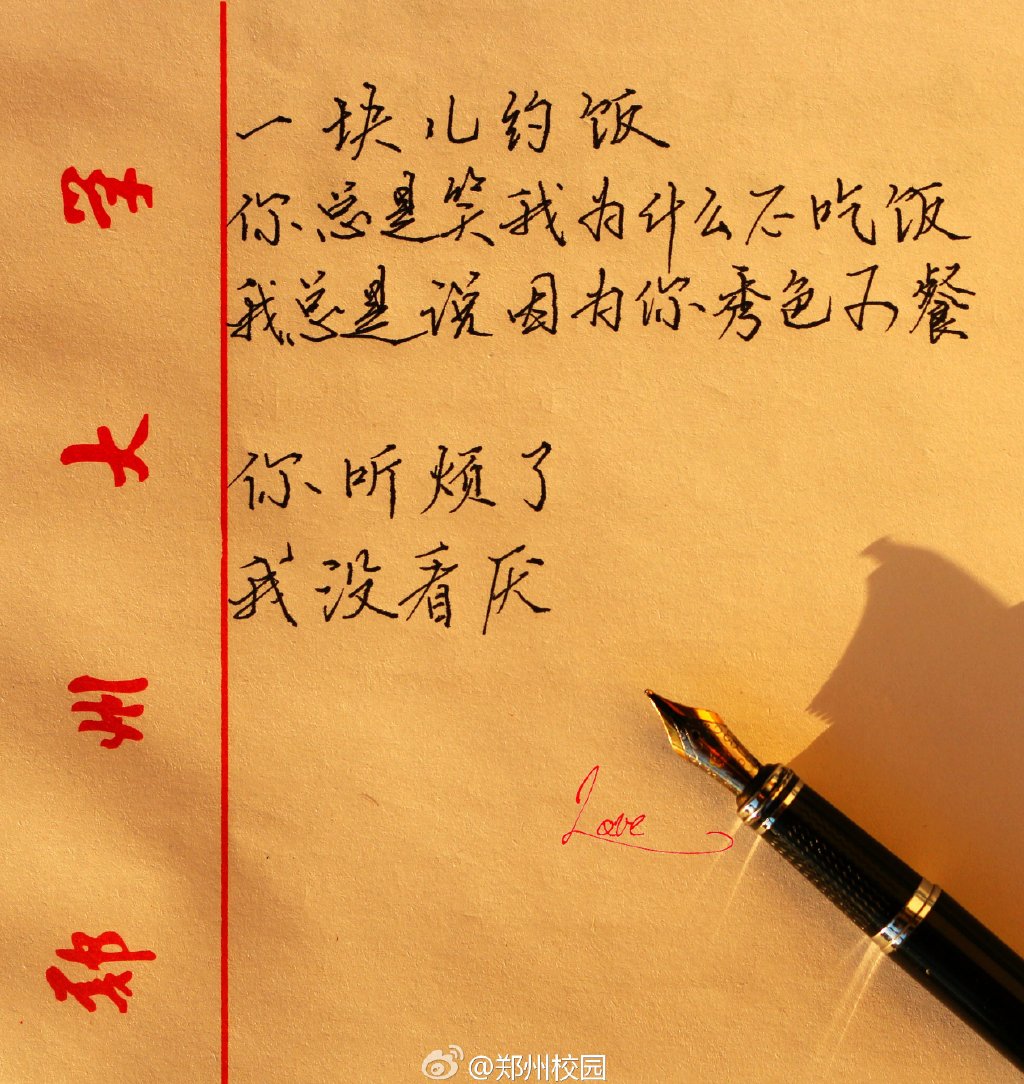 一块儿约饭
你总是笑我为什么不吃饭
我总是说因为你秀色可餐
你听烦了
我没看厌
Love
郑州大学
@郑州校园